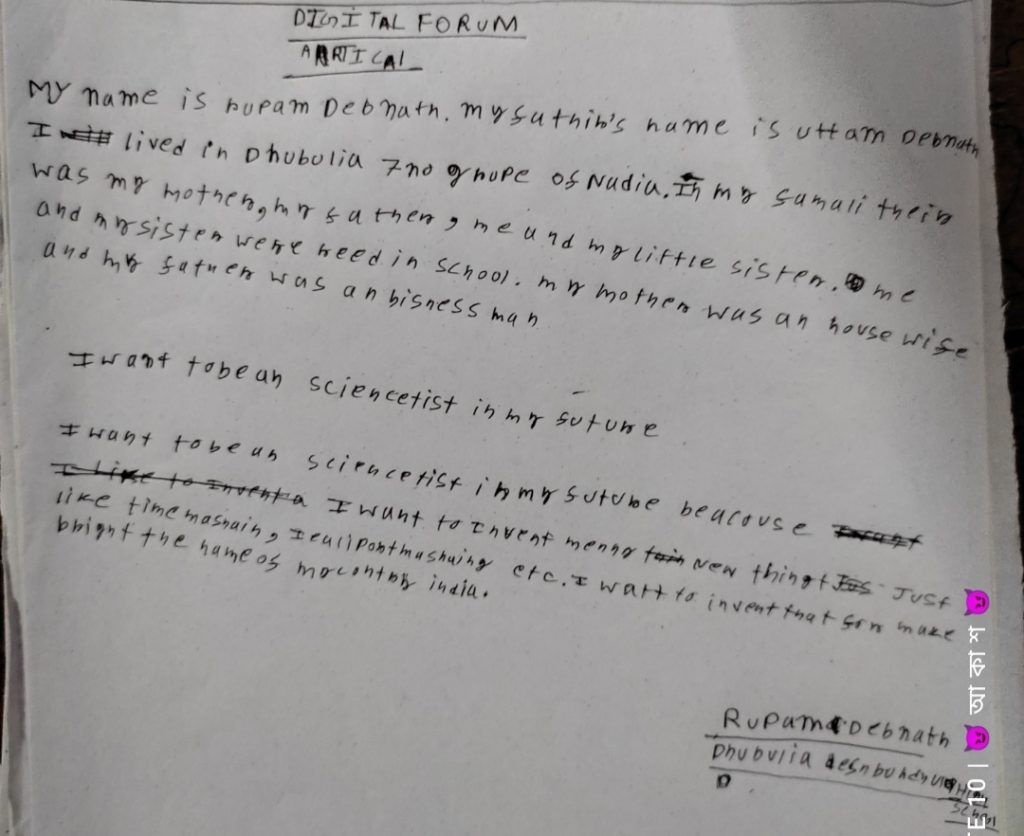 DIGITAL FORUM
ARTICAL
My name is rupam Debnath. my fathir's name is uttam Debnath
I lived in Dhubulia 7no grupe of Nadia. In my famali their
was my mother, my father, me and my little sister. me
and my sister were reed in school. my mother was an house wife
and my father was an bisness man
I want to be an sciencetist in my future
I want to be an sciencetist in my future beacouse
I want to invent menny new thingt Just
like time mashain, etc. I want to invent that for make
bright the name of my contry india.
Rupam Debnath
Dhubulia deshbandhu High
School
আকাশ